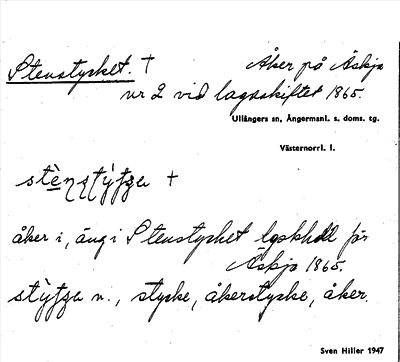 Stenstycket. † Åker på Äskja
nr 2 vid lagaskiftet 1865.
Ullångers sn, Ångermanl. s. doms. tg.
Västernorrl. l.
†
åker i, äng i Stenstycket för
Äskja 1865.
n., stycke, åkerstycke, åker.
Sven Hiller 1947